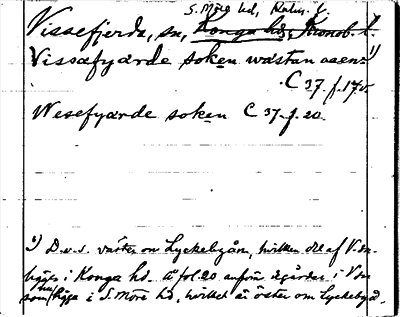 S. Möre hd, Kalm. l.
Vissefjerda, sn, Konga hd, Kronob. l.
Vissafyärde soken wästan aaen 1)
C 37 f. 17v
Wesefyärde soken C 37 f. 20.
1) D.v.s. väster om Lyckebyån, hvilken del af V-sn
i Konga hd. Å fol. 20 anföras gårdar i V-sn
som nu ligga i S. Möre hd, hvilket är öster om Lyckebyå.